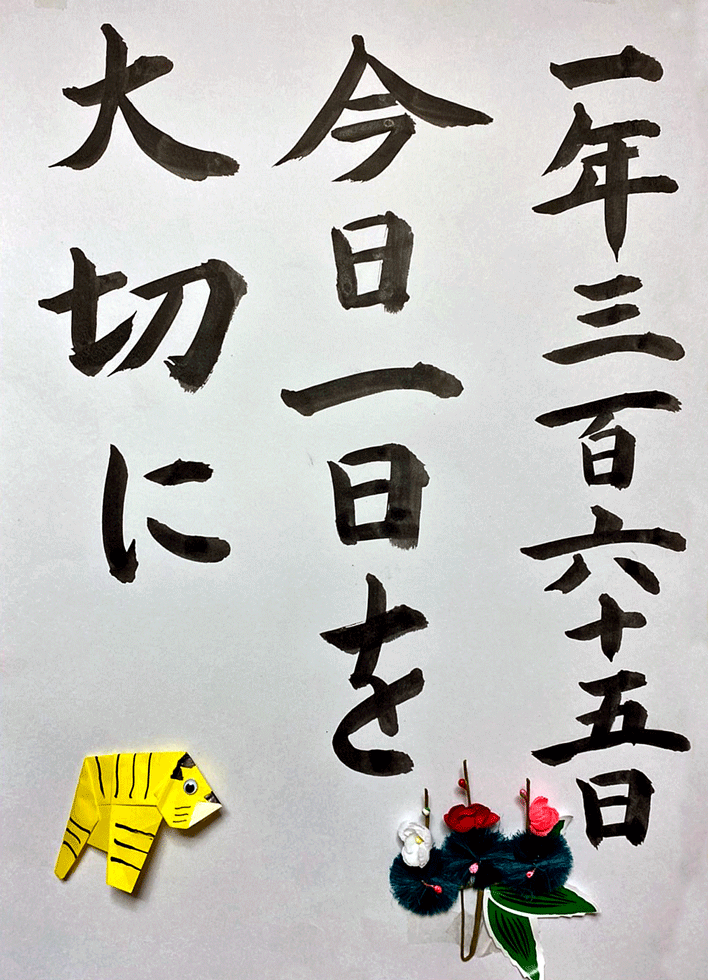 一年三百六十五日
今日一日を
大切に